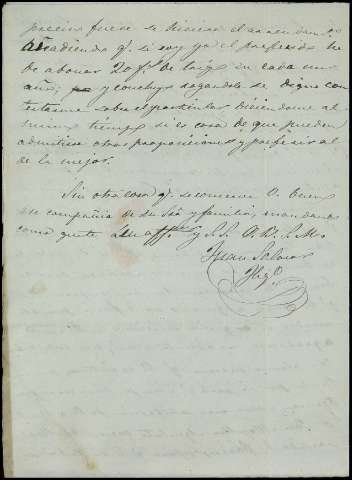 precios fuese se hiciese el arrendamto
añadiendo q. si soy yo el preferido he
de abonar 20 fs. de largo en cada un
año; y concluyo rogandole se digne con
testarme sobre el particular diciendome al
mismo tiempo si es cosa de que pueden
admitirse otras proposiciones y preferir al
de la mejor.
Sin otra cosa q. se conserve V. bueno
en compañia de su Sra y familia, mandando
como guste a su affmo y S. S. Q. B. S. M.
Juan Salazar